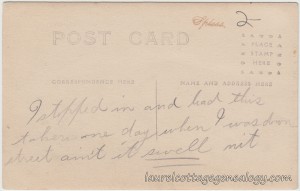 2
POST CARD
PLACE
STAMP
HERE
CORRESPONDENCE HERE
NAME AND ADDRESS HERE
I stepped in and had this
taken one day when I was down
street ain't it swell nit
laurelcottagegenealogy.com